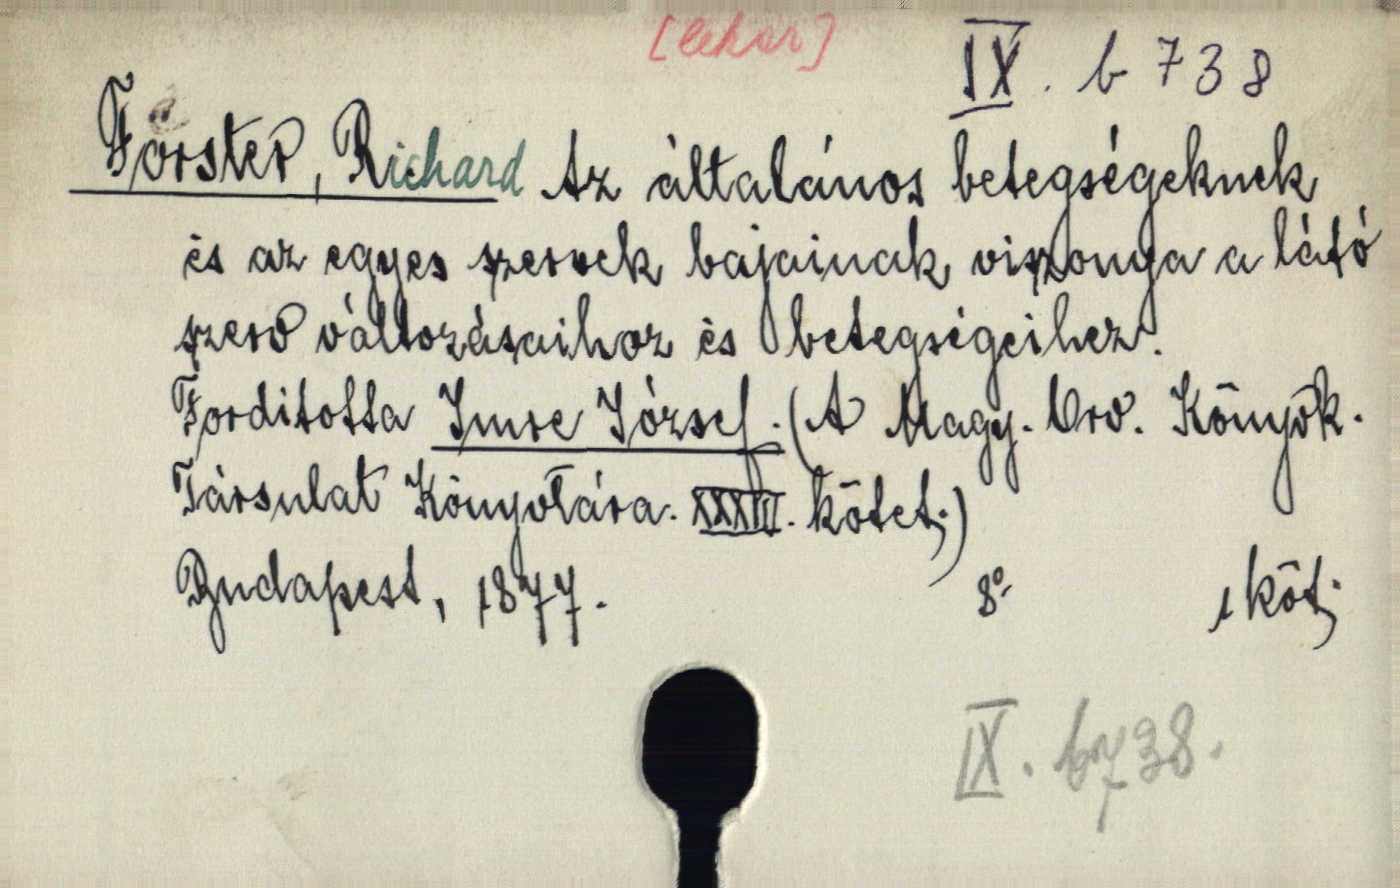 [lekár]
IX. b 738
Förster, Richard Az általános betegségeknek
és az egyes szervek bajainak viszonya a látó
szerv változásaihoz és betegségeihez.
Forditotta Imre József. (A Magy. Orv. Könyvk.
Társulat Könyvtára. XXXIII. kötet.)
Budapest, 1877. 8º. 1 köt.
IX. b. 738.